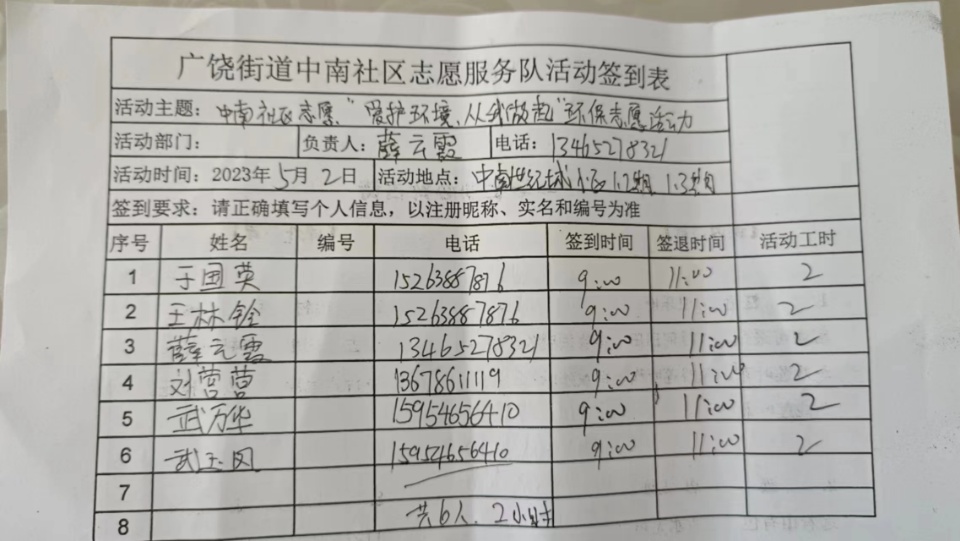 广饶街道中南社区志愿服务队活动签到表
活动主题：中南社区志愿"爱护环境、从我做起"环保志愿活动
活动部门： 负责人：薛云霞 电话：13465278321
活动时间：2023年5月2日 活动地点：中南世纪城小区1.2期 1.3期
签到要求：请正确填写个人信息，以注册昵称、实名和编号为准
序号 姓名 编号 电话 签到时间 签退时间 活动工时
1 于国英 15263887876 9:00 11:00 2
2 王林铨 15263887876 9:00 11:00 2
3 薛云霞 13465278321 9:00 11:00 2
4 刘营营 13678611119 9:00 11:00 2
5 武万华 15954656410 9:00 11:00 2
6 武玉风 15954656410 9:00 11:00 2
7
8 共6人、2小时